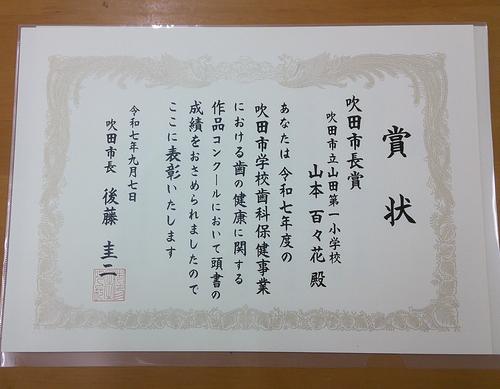 賞状
吹田市長賞
吹田市立山田第一小学校
山本 百々花 殿
あなたは令和七年度の
吹田市学校歯科保健事業
における歯の健康に関する
作品コンクールにおいて頭書の
成績をおさめられましたので
ここに表彰いたします
令和七年九月七日
吹田市長 後藤 圭二